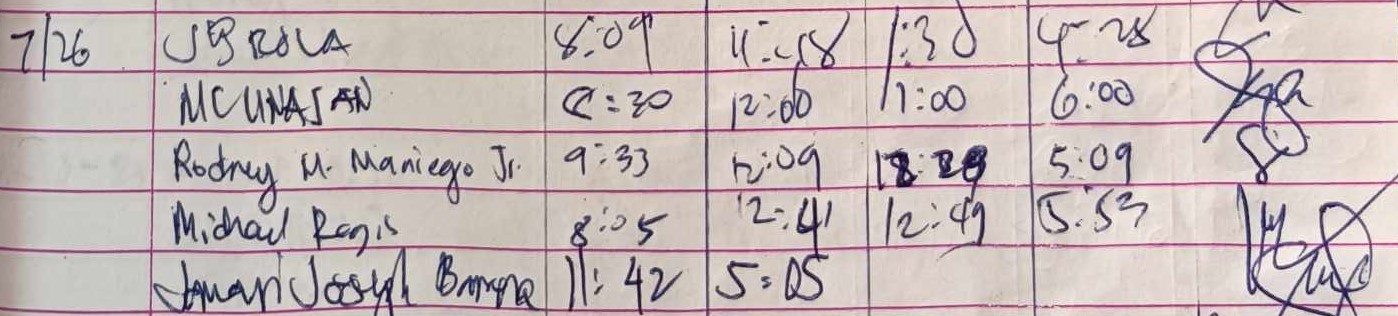 7/26 JB ROLA 8:09 11:18 1:30 4:28
MCUNASAN 8:30 12:00 1:00 6:00
Rodney M. Maniego Jr. 9:33 12:09 5:09
Michael Regis 8:05 12:41 12:49 5:53
Joseph 11:42 5:05